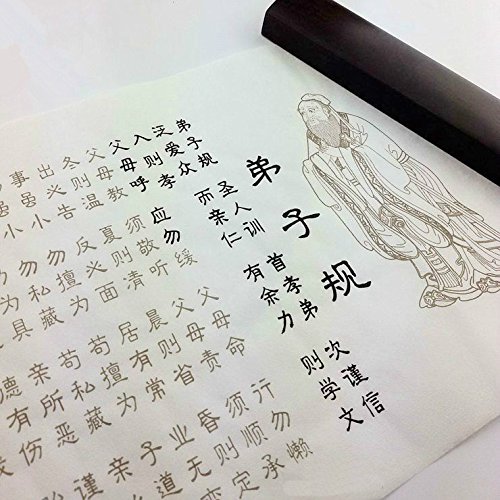 弟子规
弟子规圣人训首孝弟次谨信
泛爱众而亲仁有余力则学文
入则孝
父母呼应勿缓父母命行勿懒
父母教须敬听父母责须顺承
冬则温夏则清晨则省昏则定
出必告反必面居有常业无变
事虽小勿擅为苟擅为子道
虽小勿私藏苟私藏亲
为具亲所恶谨
德有伤